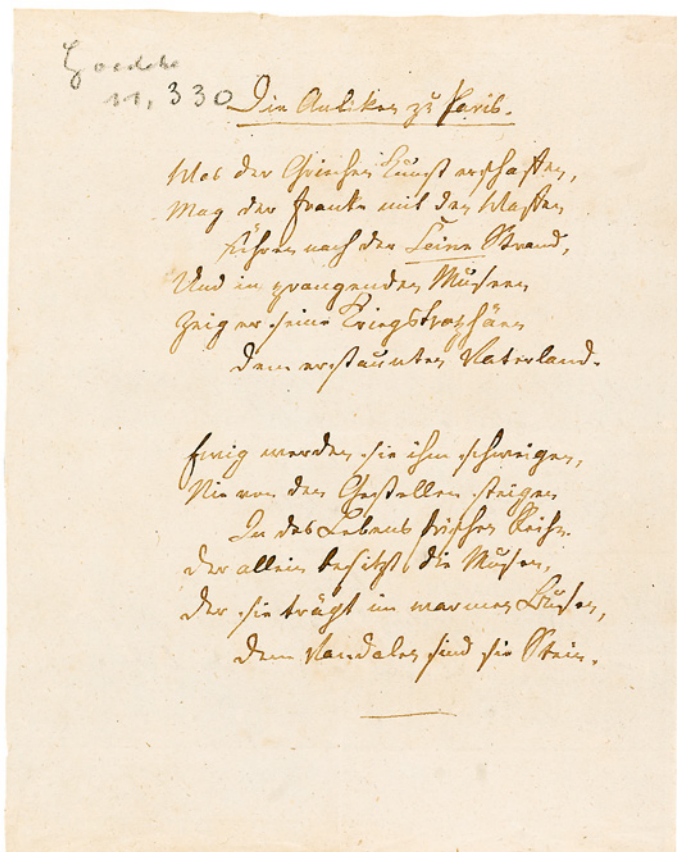 Goedeke
11, 330
Die Antiken zu Paris.
Was der Griechen Kunst erschaffen,
Mag der Franke mit den Waffen
Führen nach der Seine Strand,
Und in prangenden Museen
Zeig er seine Kriegstrophäen
Dem erstaunten Vaterland.
Ewig werden sie ihm schweigen,
Nie von den Gestellen steigen
In des Lebens frischen Reihn.
Der allein besitzt die Musen,
Der sie trägt im warmen Busen,
Dem Vandalen sind sie Stein.